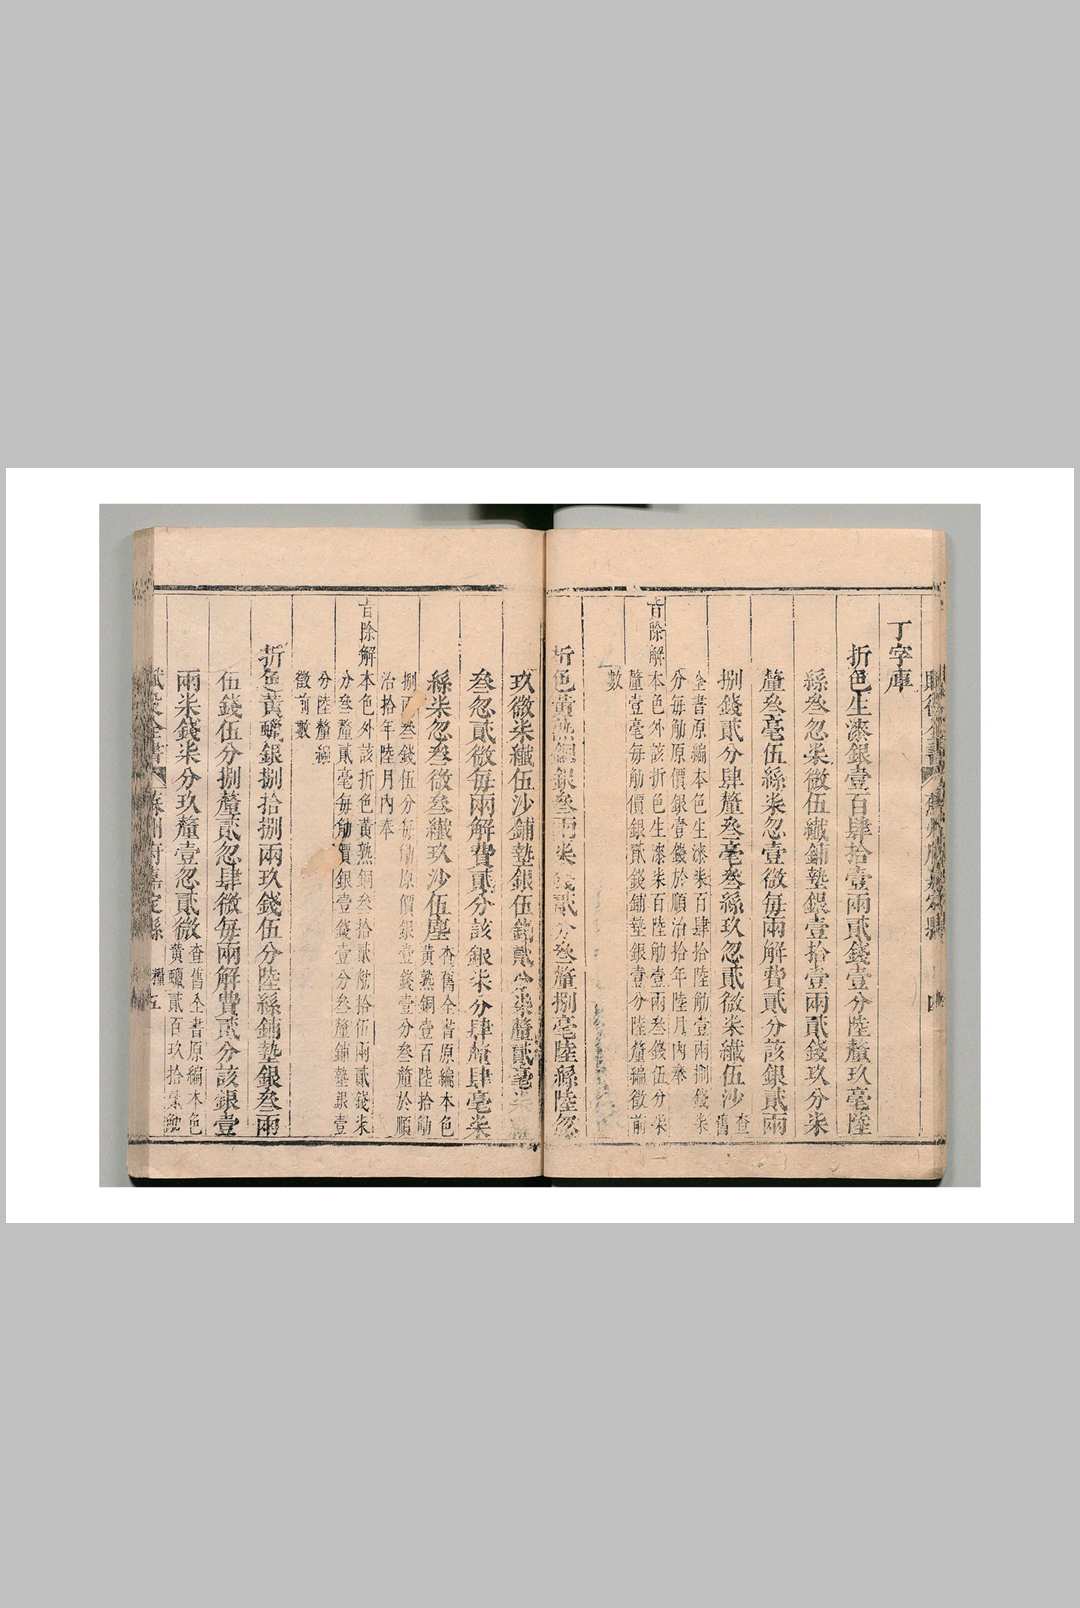 丁字庫
折色生漆銀壹百肆拾壹兩貳錢壹分陸釐玖毫陸
絲叁忽柒微伍纖鋪墊銀壹拾壹兩貳錢玖分柒
釐叁毫伍絲柒忽壹微每兩解費貳分該銀貳兩
捌錢貳分肆釐叁毫叁絲玖忽貳微柒纖伍沙
查舊
全書原編本色生漆柒百肆拾陸觔壹兩捌錢柒
分每觔原價銀壹錢於順治拾年陸月內奉
旨除解本色外該折色生漆柒百陸觔壹兩叁錢伍分柒
釐壹毫每觔價銀貳錢鋪墊銀壹分陸釐編徵前
數
折色黃熟銅銀叁兩柒錢貳分叁釐捌毫陸絲陸忽
玖微柒纖伍沙鋪墊銀伍錢貳分柒釐貳毫柒
叁忽貳微每兩解費貳分該銀柒分肆釐肆毫柒
絲柒忽叁微叁纖玖沙伍塵
查舊全書原編本色
黃熟銅壹百陸拾觔
捌兩叁錢伍分每觔原價銀壹錢壹分叁釐於順
治拾年陸月內奉
旨除解本色外該折色黃熟銅叁拾貳觔拾伍兩貳錢柒
分叁釐貳毫每觔價銀壹錢壹分叁釐鋪墊銀壹
分陸釐編
徵前數
折色黃蠟銀捌拾捌兩玖錢伍分陸絲鋪墊銀叁兩
伍錢伍分捌釐貳忽肆微每兩解費貳分該銀壹
兩柒錢柒分玖釐壹忽貳微
查舊全書原編本色
黃蠟貳百玖拾
賦役全書
蘇州府嘉定縣
五